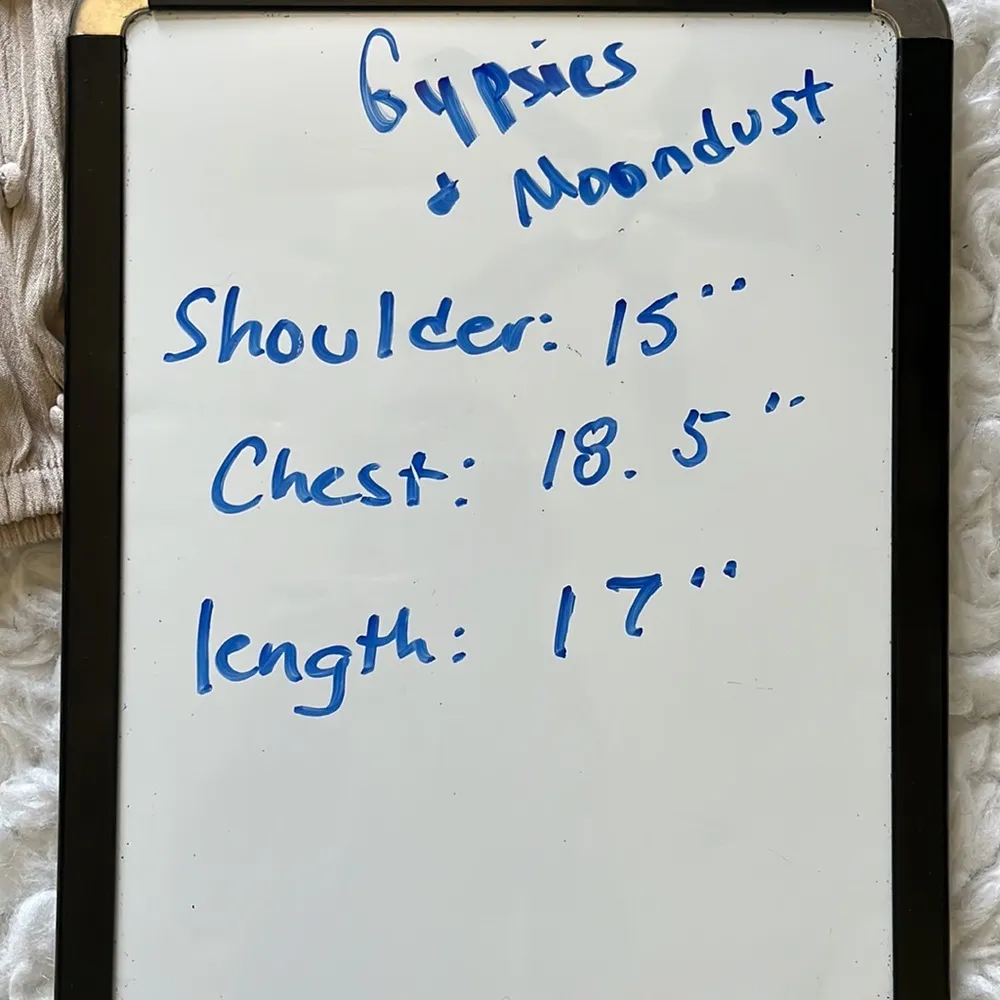 Gypsies
& Moondust
Shoulder: 15"
Chest: 18.5"
length: 17"